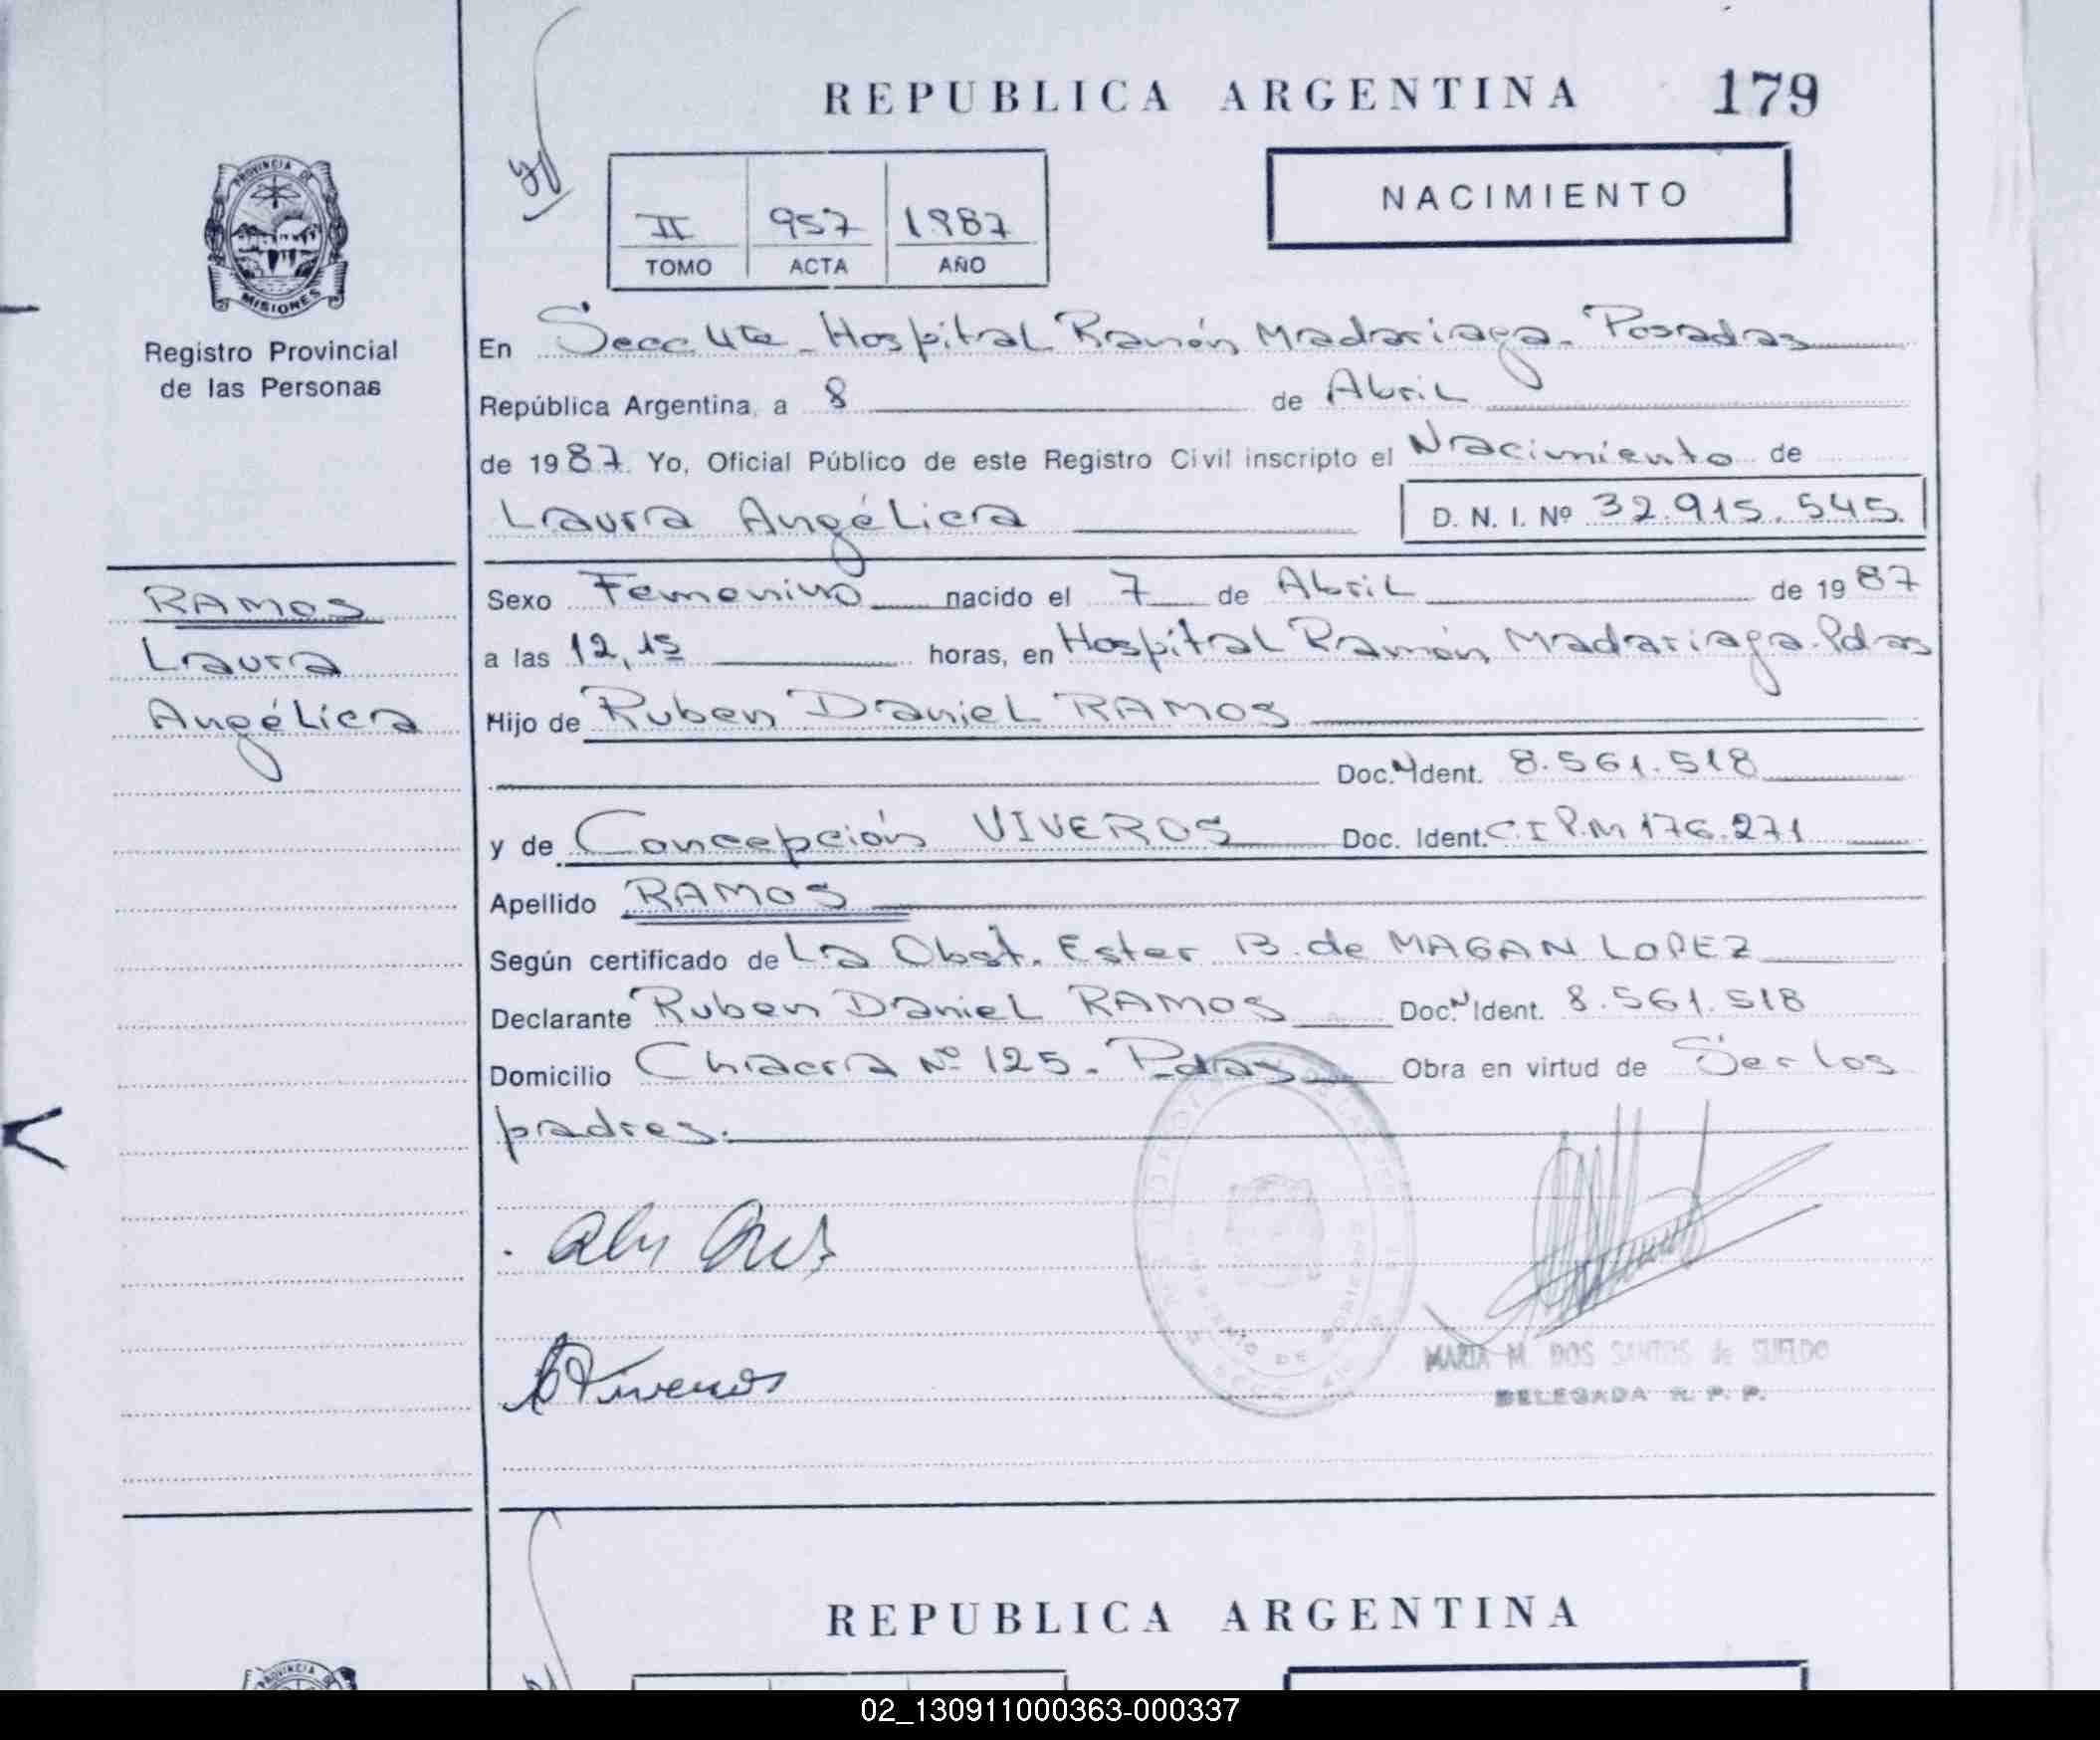 REPUBLICA ARGENTINA 179
PROVINCIA DE
MISIONES
Registro Provincial
de las Personas
II 957 1987
TOMO ACTA AÑO
NACIMIENTO
En Secc 4ta - Hospital Ramón Madariaga - Posadas
República Argentina, a 8 de Abril
de 1987. Yo, Oficial Público de este Registro Civil inscripto el Nacimiento de
Laura Angélica D. N. I. Nº 32.915.545
RAMOS
Laura
Angélica
Sexo Femenino nacido el 7 de Abril de 1987
a las 12,15 horas, en Hospital Ramón Madariaga. Pdas
Hijo de Ruben Daniel RAMOS
Doc. Ident. 8.561.518
y de Concepción VIVEROS Doc. Ident. C.I P.M 176.271
Apellido RAMOS
Según certificado de La Obst. Ester B. de MAGAN LOPEZ
Declarante Ruben Daniel RAMOS Doc. Ident. 8.561.518
Domicilio Chacra Nº 125 - Pdas Obra en virtud de Ser los
padres.
Viveros
MINISTERIO DE GOBIERNO
MARIA M. DOS SANTOS de SUELDO
DELEGADA R. P. P.
REPUBLICA ARGENTINA
PROVINCIA
02_130911000363-000337